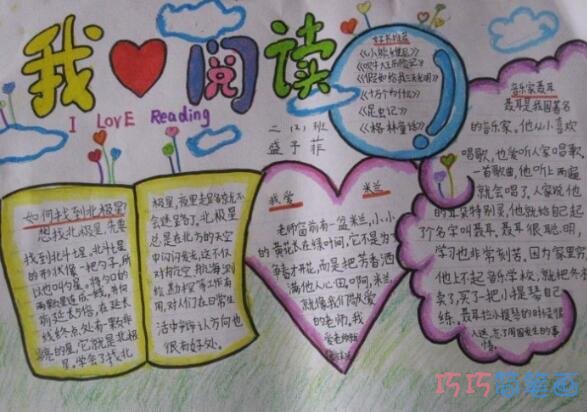 我❤阅读
I LovE Reading
二（2）班
盛予菲
好书推荐
《小熊过桥》
《吹牛大王历险记》
《假如给我三天光明》
《十万个为什么》
《昆虫记》
《格林童话》
如何找到北极星
想找北极星，先要
找到北斗七星。北斗七星
的形状像一把勺子，所
以也叫勺星。
前延长5倍，在延长
线终点处有一颗非
常亮的星，它就是北极
星。学会了找北
极星，夜里走路就不
会迷路了。北极星
总是在北方的天空
中闪闪发光，这不仅
对航空、航海、测
绘、勘探等工作有
用，对人们在日常生
活中辨认方向也
很有好处。
我爱
米兰
老师窗前有一盆米兰，小小
的黄花藏在绿叶间，它不是为了
争春才开花，而是把芳香洒
满他人心田。啊，米兰，
就像我们敬爱
的老师，我
爱老师
音乐家聂耳
聂耳是我国著名
的音乐家。他从小喜欢
唱歌，也爱听人家唱歌。
一首歌曲，他听上两遍
就会唱了。人家说他
的耳朵特别灵，他就给自己起
了个名字叫聂耳。聂耳很聪明，
学习也非常刻苦。因为家里穷，
他上不起音乐学校，就把冬衣
卖了，买了一把小提琴自己
练。聂耳拉小提琴的时候很
入迷，忘了周围发生的事
情。
巧巧简笔画